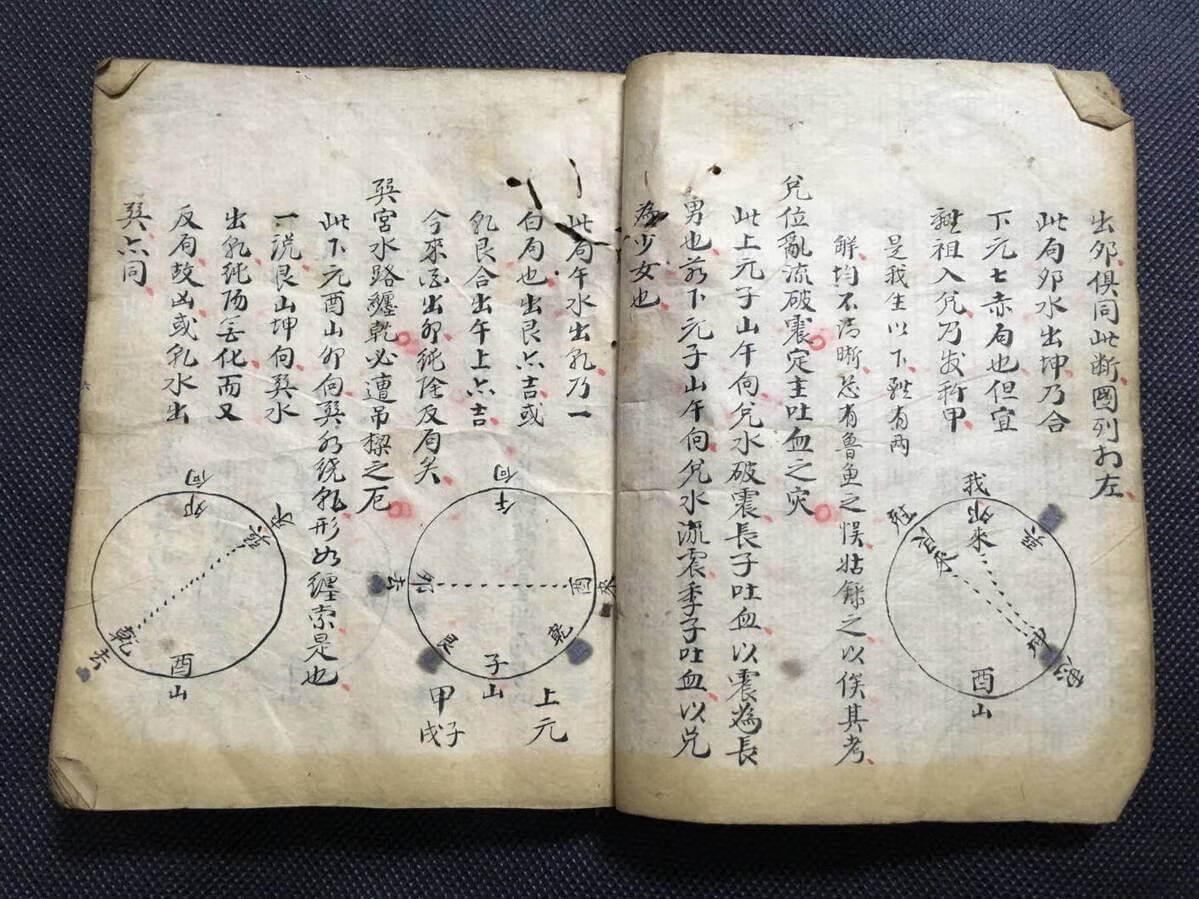 出卯俱同此断圖列於左
此局卯水出坤乃合
下元七赤局也但宜
祖入兌乃发科甲
是我生以下 有两
鮮均不清晰恐有鲁魚之悮姑錄之以俟其考
兌位亂流破震定主吐血之灾
此上元子山午向兌水破震長子吐血以震為長
男也若下元子山午向兌水流震季子吐血以兌
為少女也
我
卯
來
巽
坤
酉
山
此局午水出乾乃一
白局也出艮亦吉或
乾艮合出午上亦吉
今來酉出卯純陰反局矣
巽宮水路纏乾必遭吊樑之厄
此下元酉山卯向巽水繞乾形如纏索是也
一说艮山坤向巽水
出乾純陽無化而又
反局故凶或乾水出
巽亦同
午向
卯去
酉來
艮
乾
子山
上元
甲子
戌
卯向
巽水
乾去
酉山